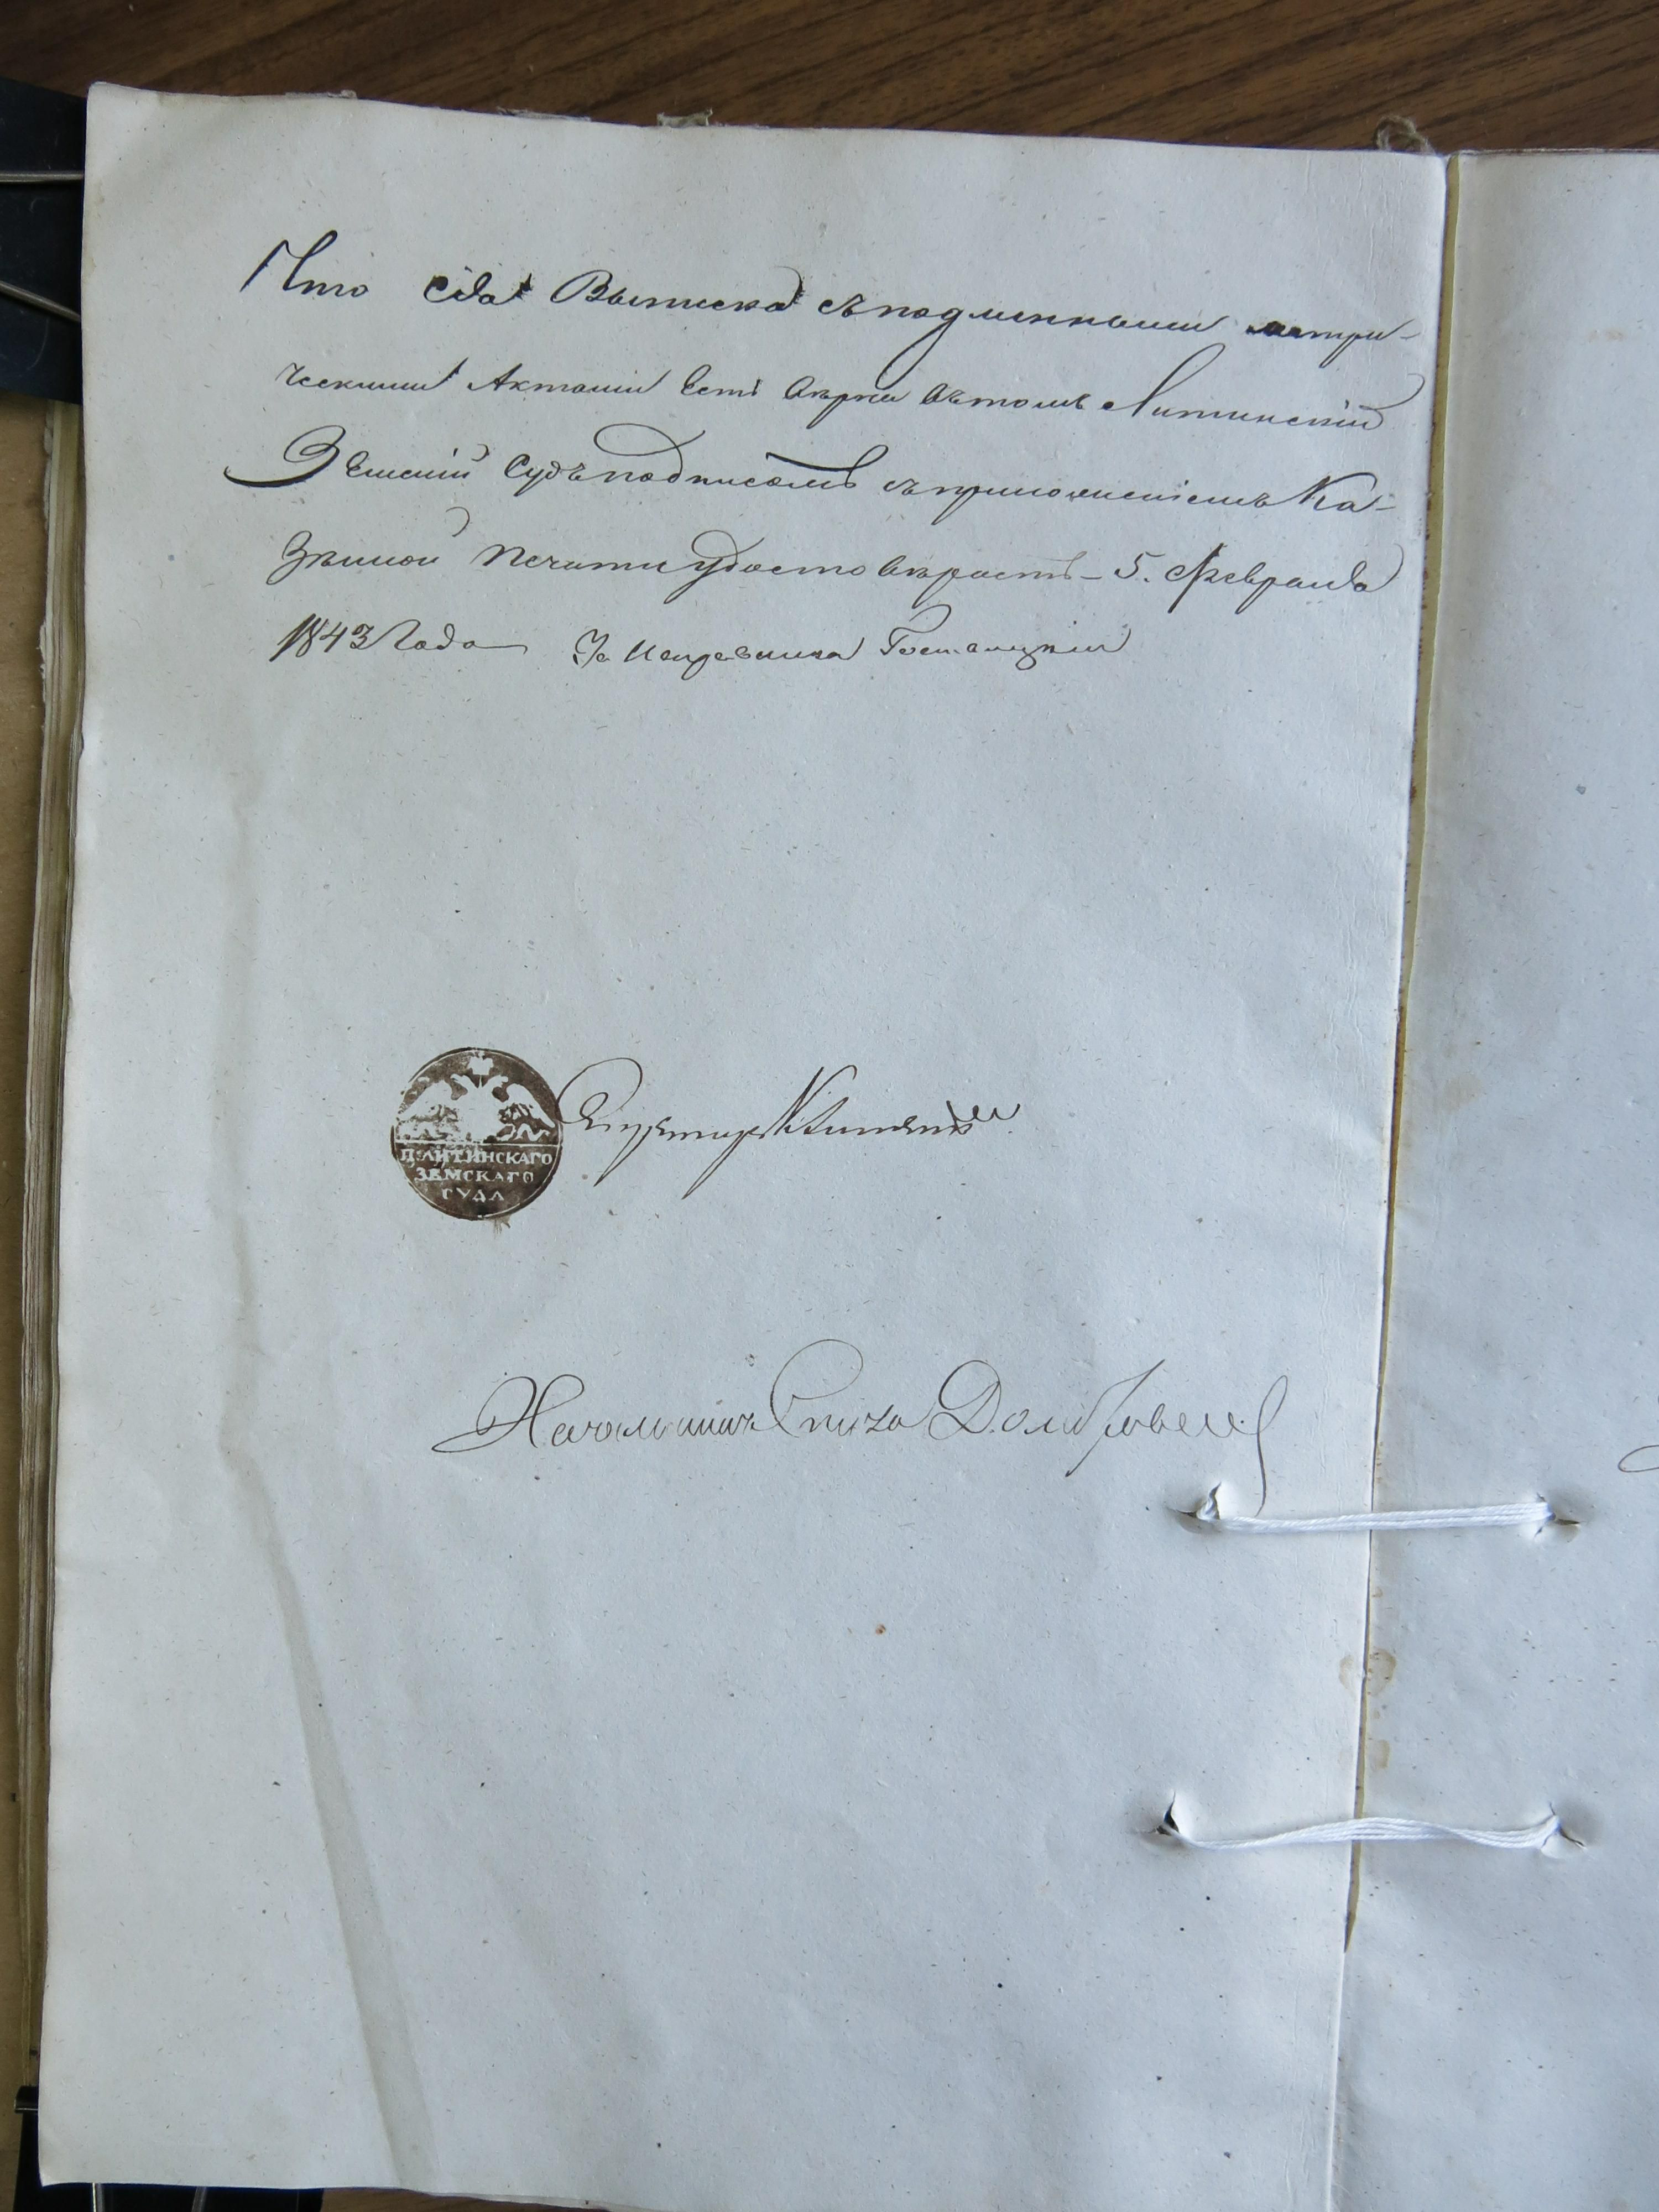 Что сія Выписка съ подлинными метри-
ческими Актами есть вѣрна въ томъ Литинскій
Земскій Судъ подписомъ съ приложеніемъ Ка-
зенной печати удостовѣряетъ 5. Февраля
1843 Года За Исправника
П. ЛИТИНСКАГО
ЗЕМСКАГО
СУДА
Секретарь
Начальникъ Стола Домбровскій